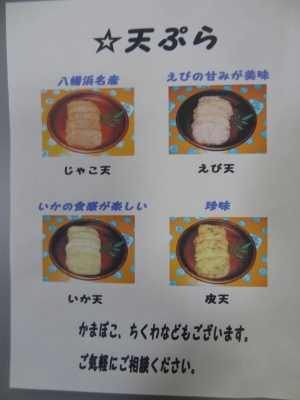 ☆天ぷら
八幡浜名産
えびの甘みが美味
じゃこ天
えび天
いかの食感が楽しい
珍味
いか天
皮天
かまぼこ、ちくわなどもございます。
ご気軽にご相談ください。